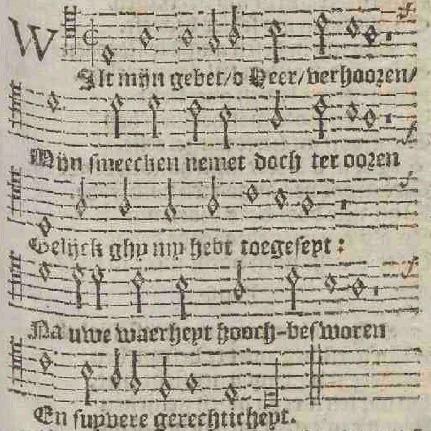 WIlt mijn gebet/o Heer/verhooren/
Mijn smeecken nemet doch ter ooren
Gelijck ghy my hebt toegeseyt:
Na uwe waerheyt hooch-besworen
En suyvere gerechticheyt.